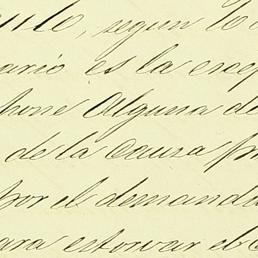 culo, segun lo
ario es la escep
pone Alguna de
de la Causa pr
por el demanda
ara estorvar el C